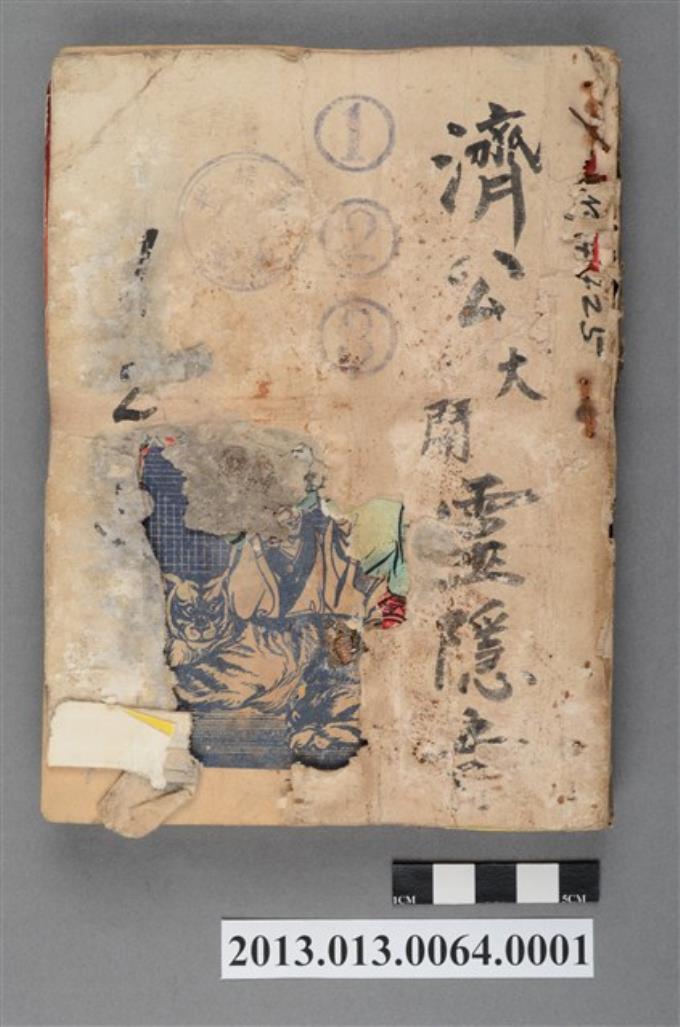 濟公
大
鬧
靈隱寺
1
2
3
1CM 5CM
2013.013.0064.0001